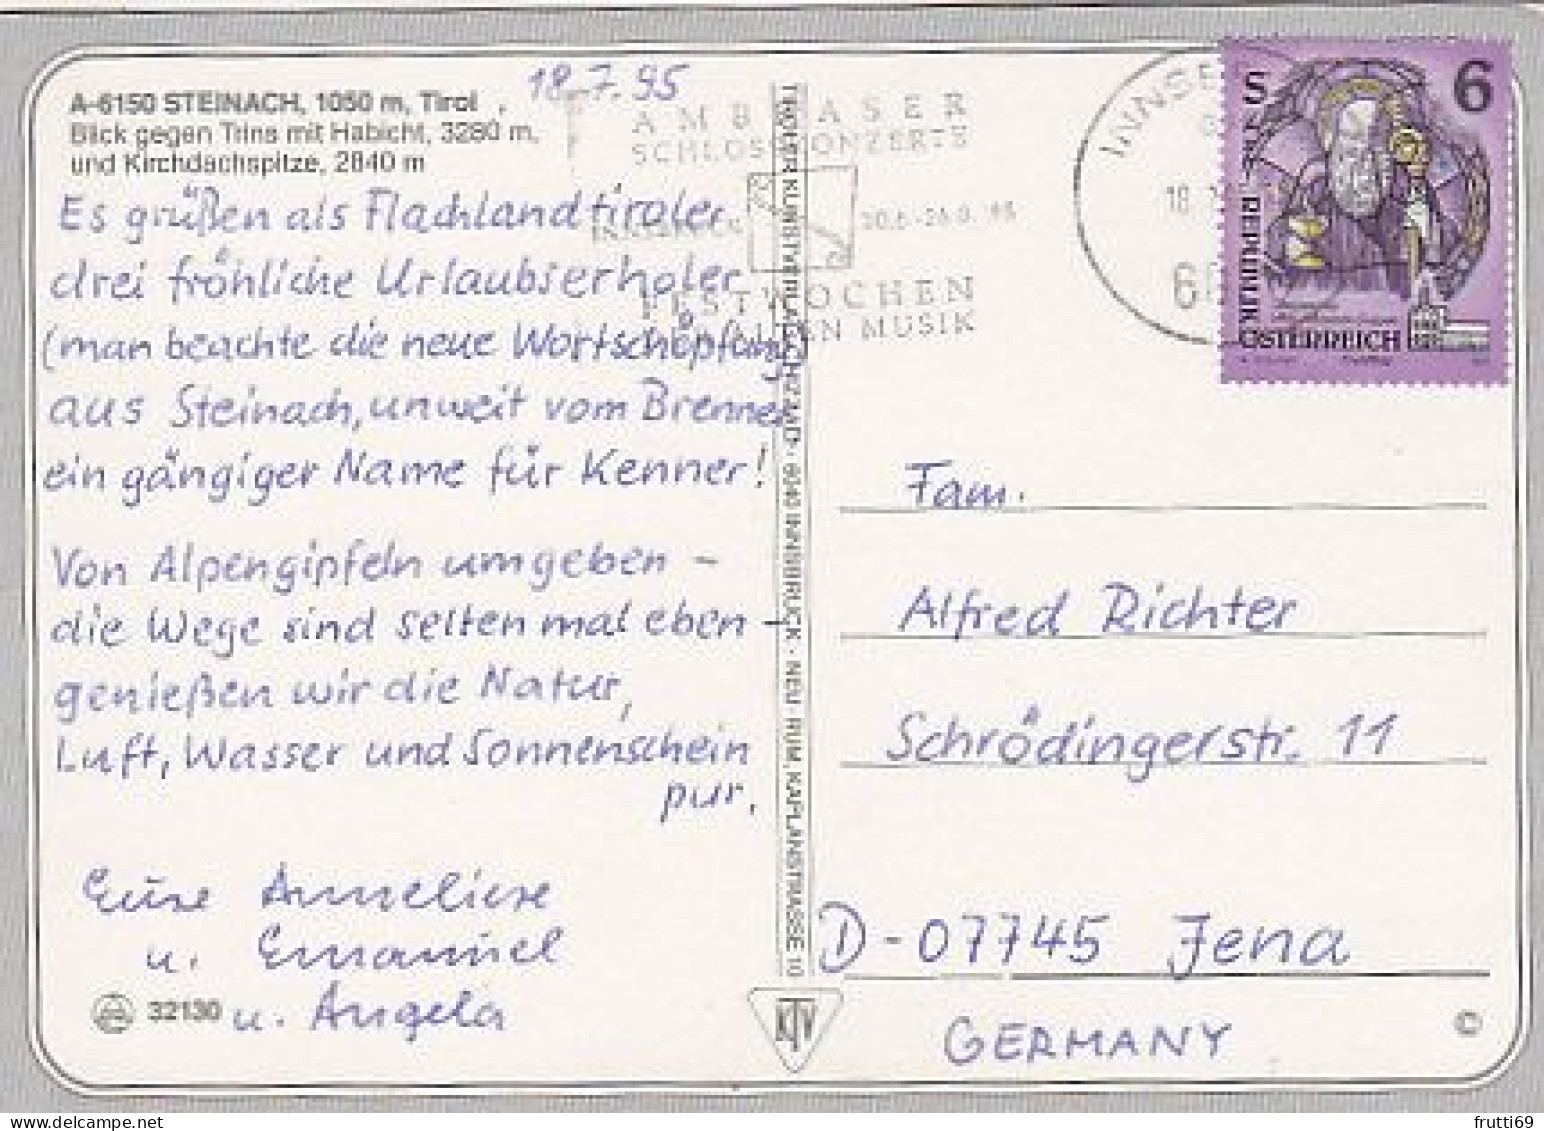 18.7.95
A-6150 STEINACH, 1050 m, Tirol
Blick gegen Trins mit Habicht, 3280 m,
und Kirchdachspitze, 2840 m
Es grüßen als Flachlandtiroler
drei fröhliche Urlaubserholer
(man beachte die neue Wortschöpfung)
aus Steinach, unweit vom Brenner,
ein gängiger Name für Kenner!
Von Alpengipfeln umgeben -
die Wege sind selten mal eben -
genießen wir die Natur,
Luft, Wasser und Sonnenschein
pur.
Eure Anneliese
u. Emanuel
u. Angela
32130
TIROLER KUNSTVERLAG CHIZZALI · 6040 INNSBRUCK · NEU-RUM KAPLANSTRASSE 10
KTV
AMBRASER
SCHLOSSKONZERTE
FESTWOCHEN
ALTEN MUSIK
INNSB
18
S 6
REPUBLIK
ÖSTERREICH
Fam.
Alfred Richter
Schrödingerstr. 11
D-07745 Jena
GERMANY
©
frutti69